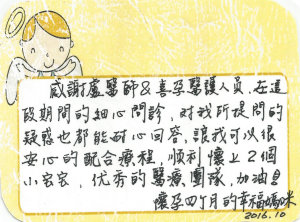 感謝盧醫師&喜孕醫護人員,在這
段期間的細心問診,對我所提問的
疑惑也都能耐心回答,讓我可以很
安心的配合療程,順利懷上2個
小宝宝,優秀的醫療團隊,加油!
懷孕四个月的幸福媽咪
2016.10